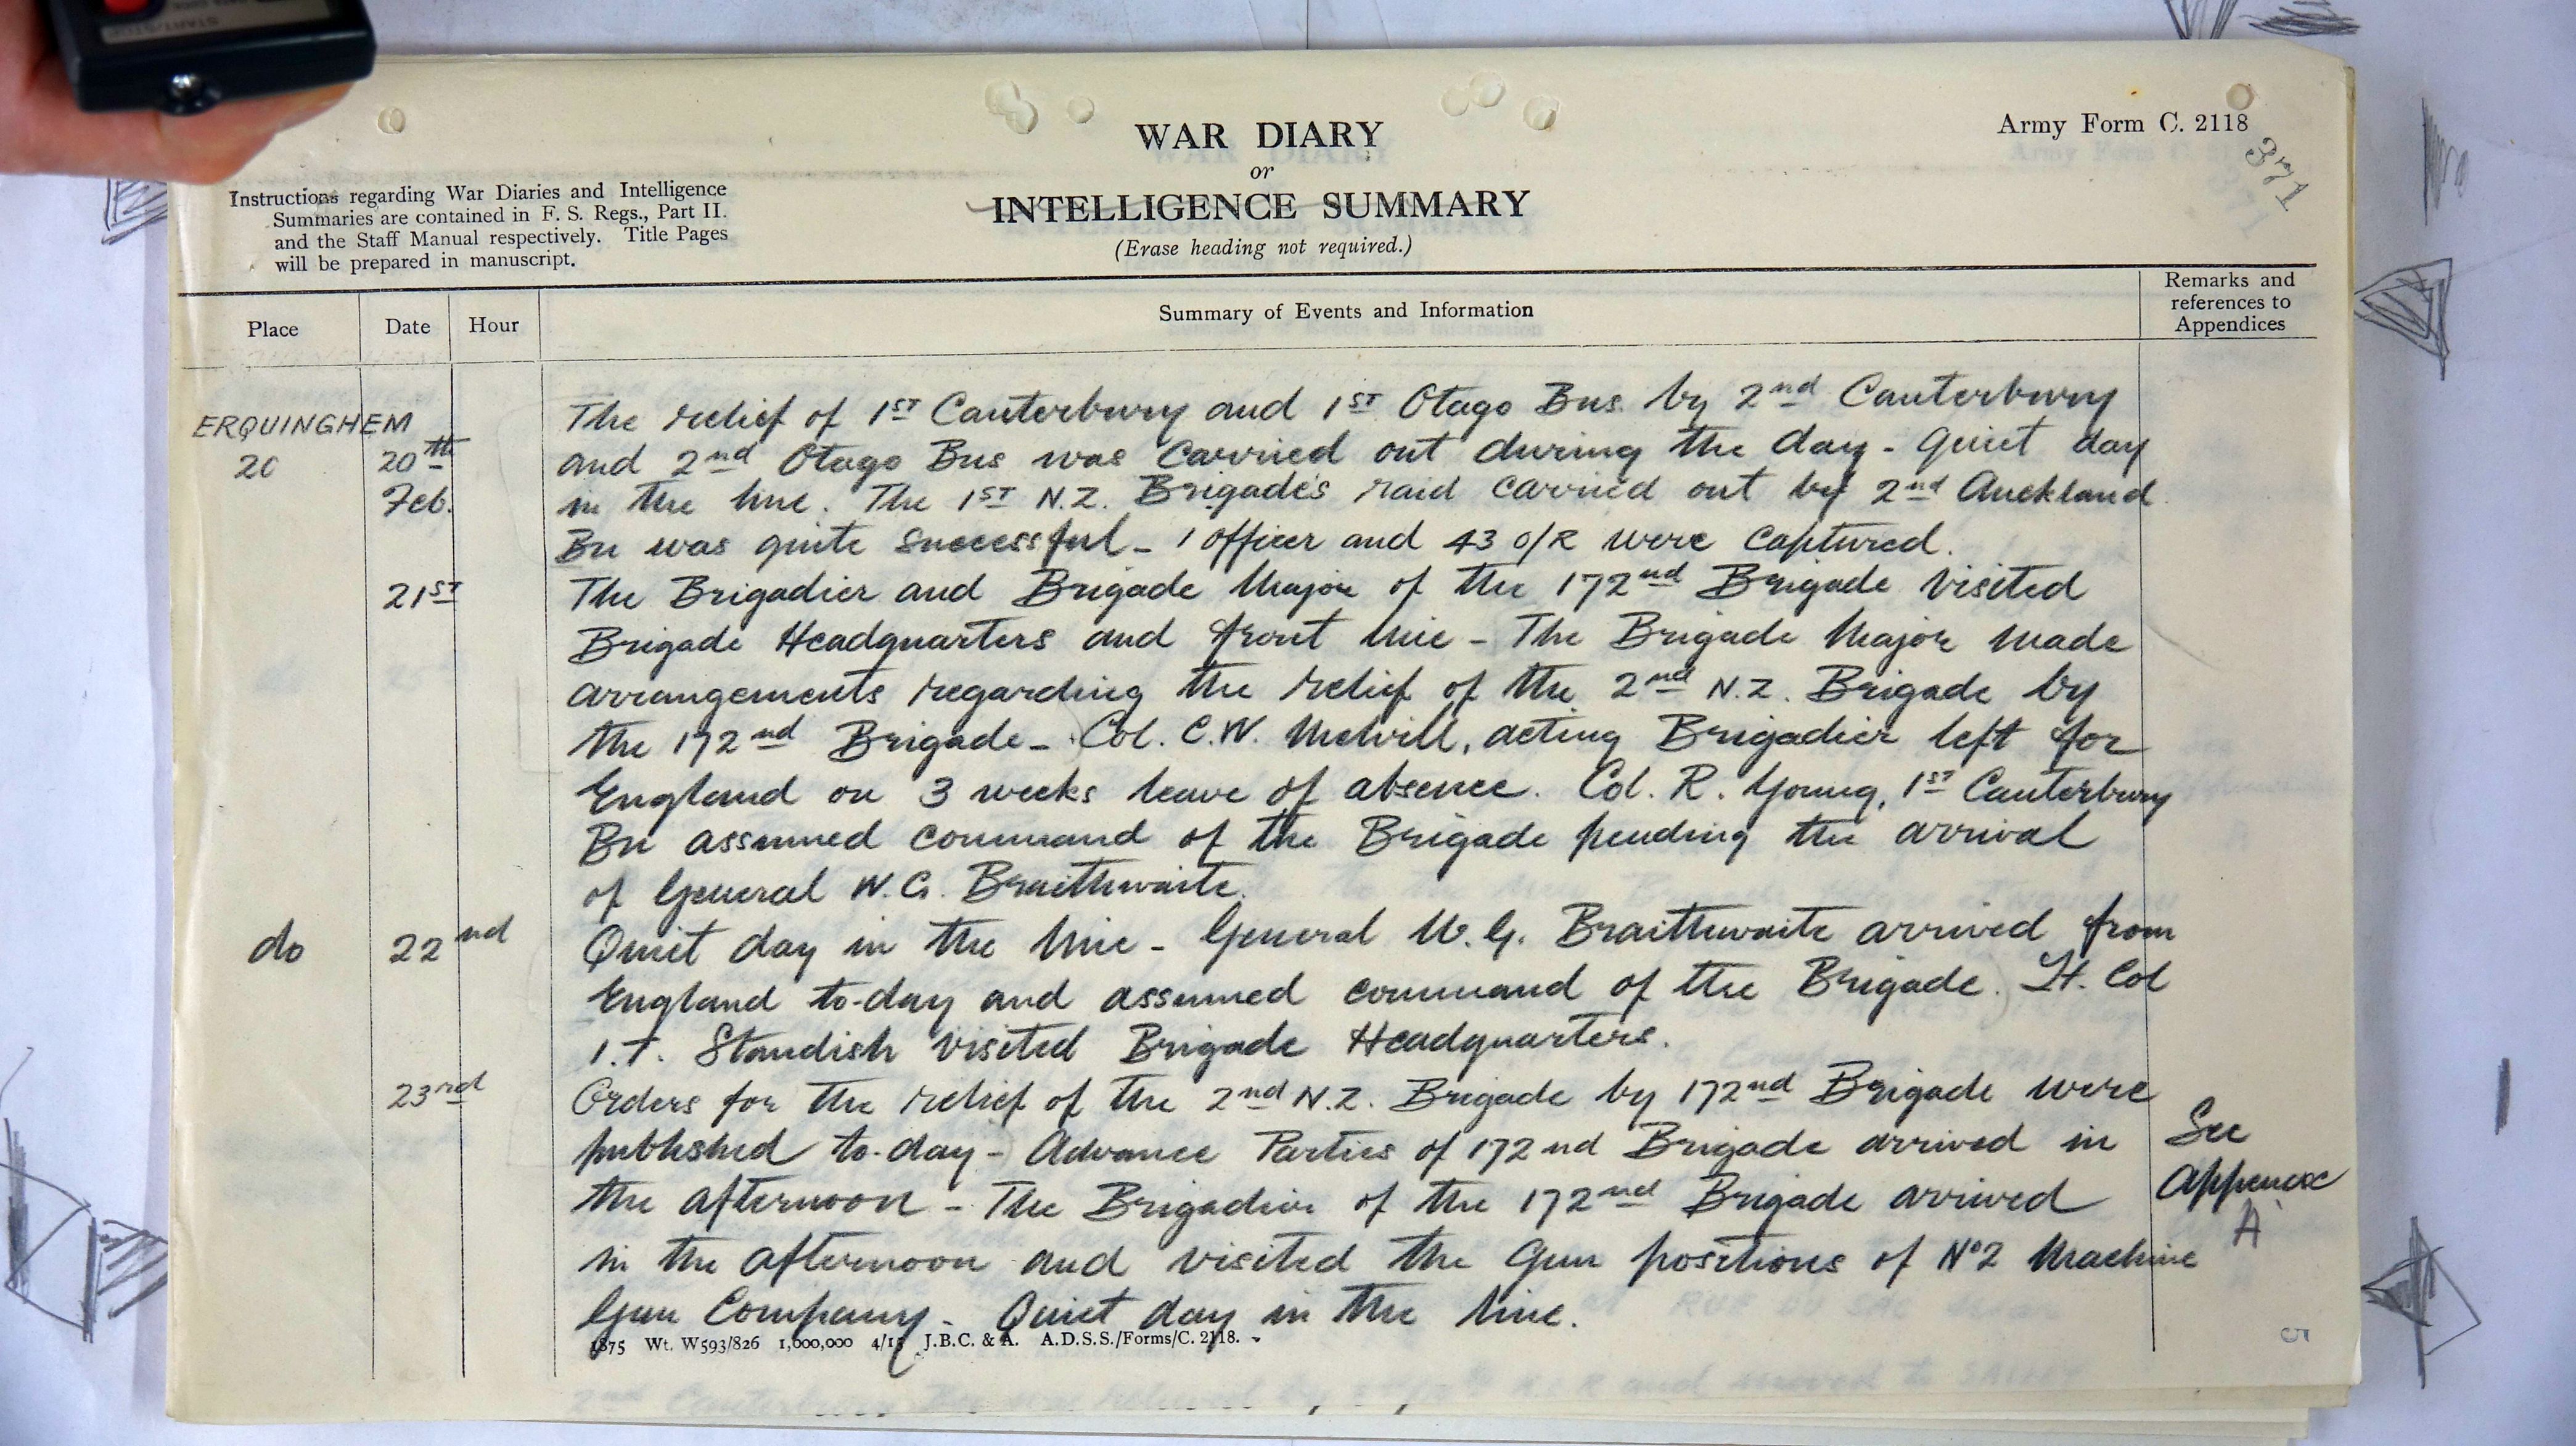 Army Form C. 2118
371
WAR DIARY
or
INTELLIGENCE SUMMARY
(Erase heading not required.)
Instructions regarding War Diaries and Intelligence
Summaries are contained in F. S. Regs., Part II.
and the Staff Manual respectively. Title Pages
will be prepared in manuscript.
Place
Date
Hour
Summary of Events and Information
Remarks and
references to
Appendices
ERQUINGHEM
20
20th
Feb.
The relief of 1ST Canterbury and 1ST Otago Bns. by 2nd Canterbury
and 2nd Otago Bns was carried out during the day - Quiet day
in the line. The 1ST N.Z. Brigades raid carried out by 2nd Auckland
Bn was quite successful - 1 officer and 43 O/R were captured.
21ST
The Brigadier and Brigade Major of the 172nd Brigade visited
Brigade Headquarters and front line - The Brigade Major made
arrangements regarding the relief of the 2nd N.Z. Brigade by
the 172nd Brigade - Col. C.W. Melvill, acting Brigadier left for
England on 3 weeks leave of absence. Col. R. Young, 1ST Canterbury
Bn assumed command of the Brigade pending the arrival
of General W.G. Braithwaite.
do
22nd
Quiet day in the line - General W.G. Braithwaite arrived from
England to-day and assumed command of the Brigade. Lt. Col
I.T. Standish visited Brigade Headquarters.
23rd
Orders for the relief of the 2nd N.Z. Brigade by 172nd Brigade were
published to-day - Advance Parties of 172nd Brigade arrived in
the afternoon - The Brigadier of the 172nd Brigade arrived
in the afternoon and visited the Gun positions of No 2 Machine
Gun Company - Quiet day in the line.
See
A
1875 Wt. W593/826 1,000,000 4/15 J.B.C. & A. A.D.S.S./Forms/C. 2118.